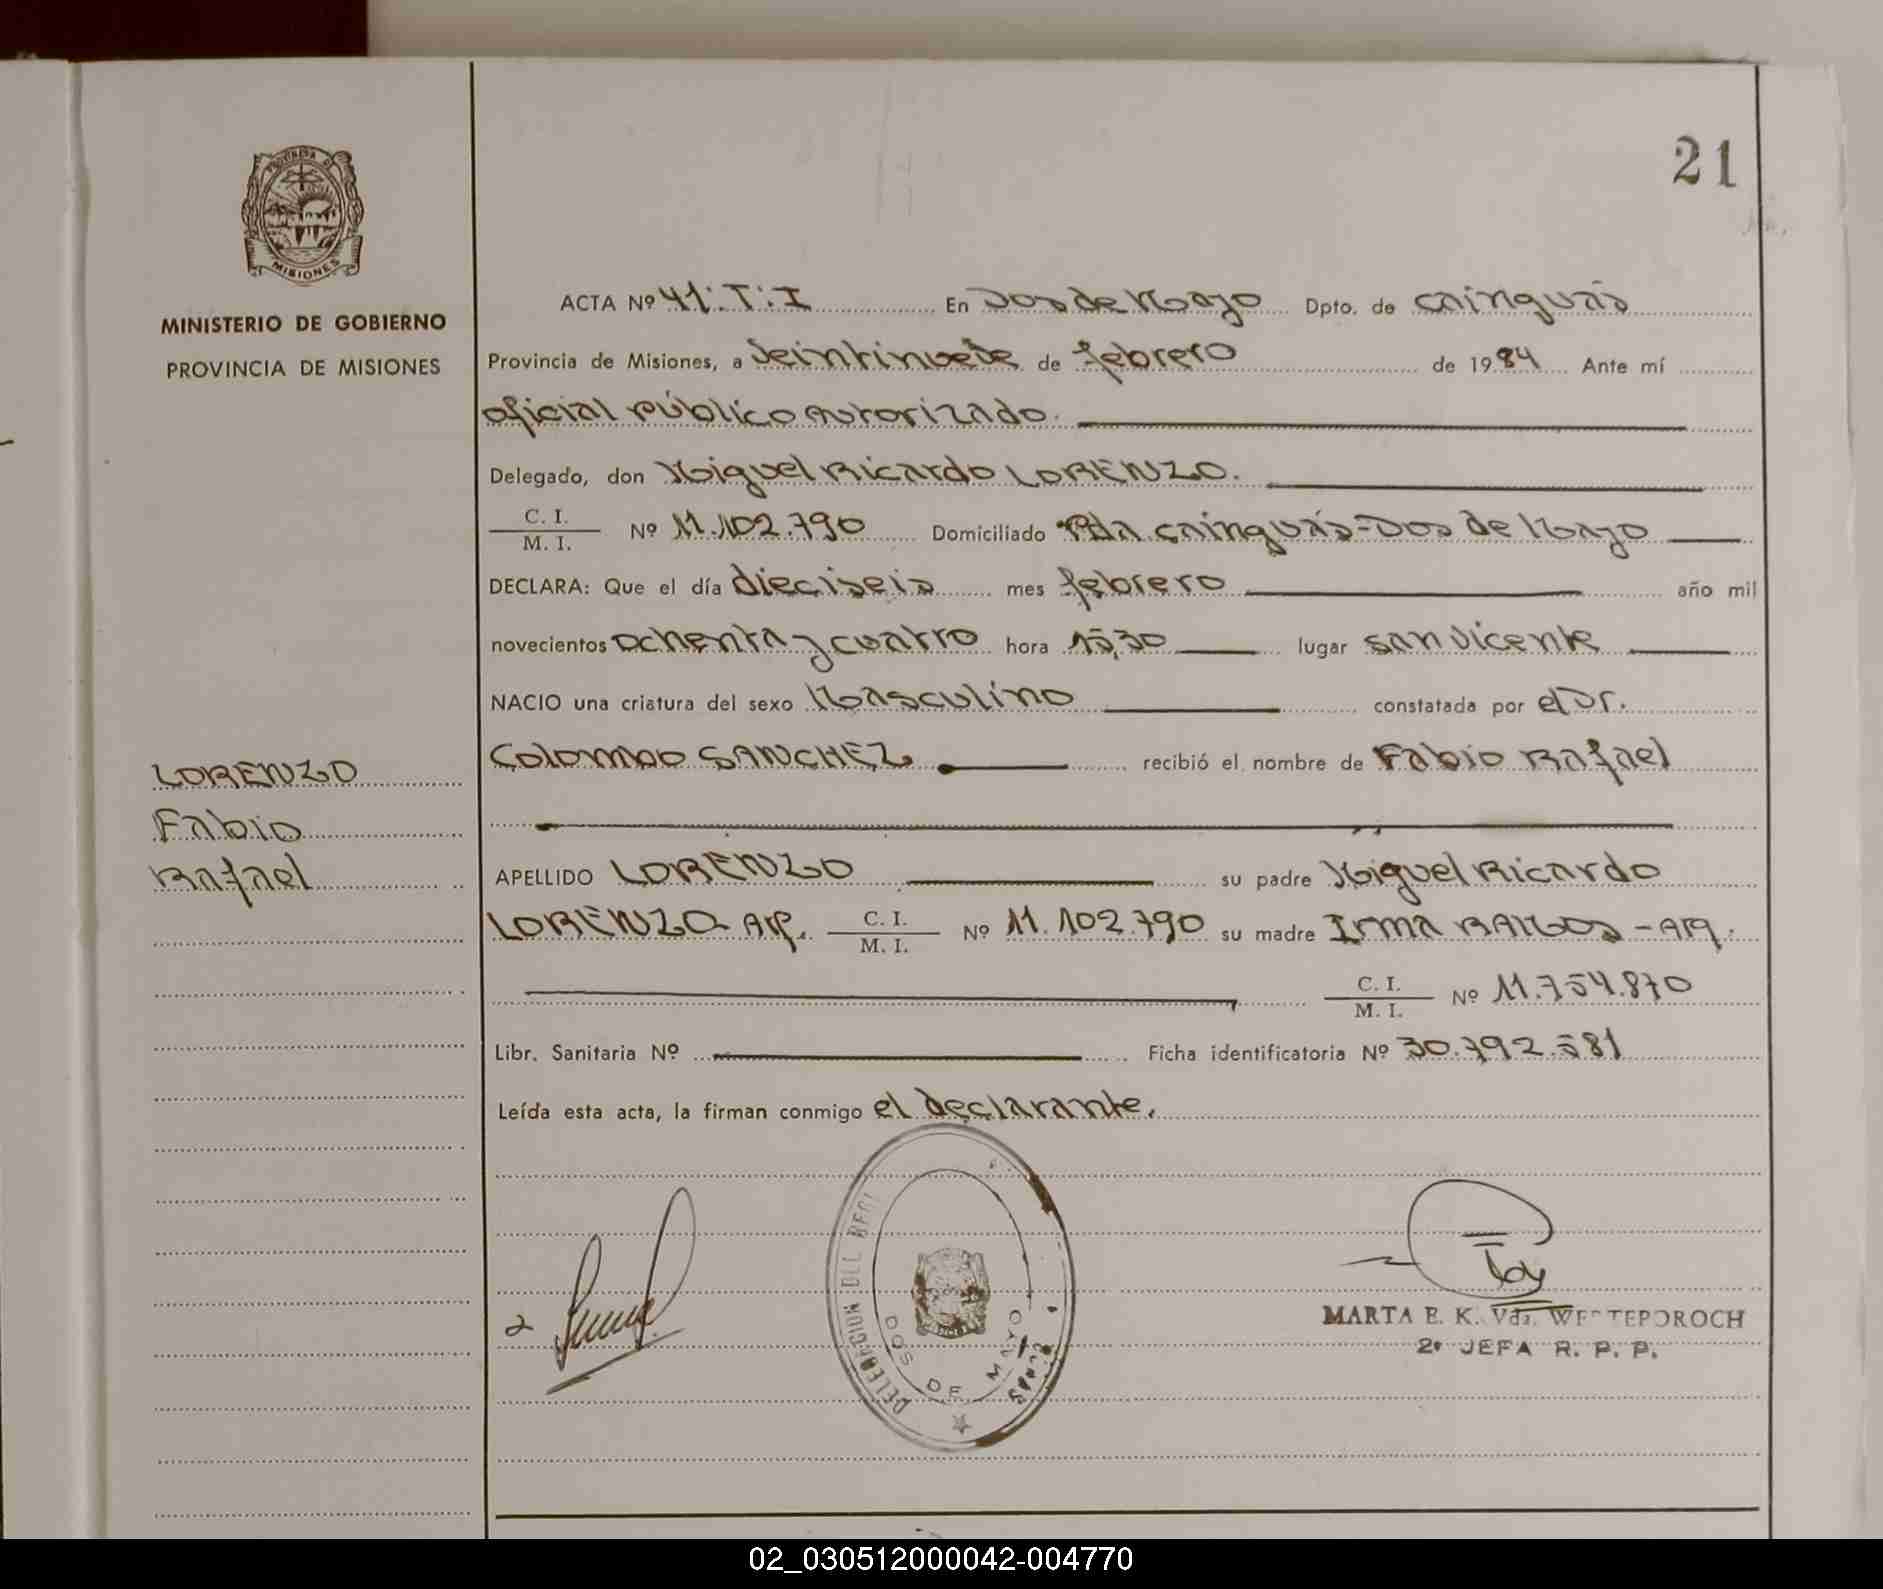 21
PROVINCIA DE
MISIONES
MINISTERIO DE GOBIERNO
PROVINCIA DE MISIONES
ACTA Nº 41: T: I En Dos de Mayo Dpto. de Cainguás
Provincia de Misiones, a Veintinueve de febrero de 1984 Ante mí
oficial público autorizado.
Delegado, don Miguel Ricardo LORENZO.
C. I.
M. I. Nº 11.102.790 Domiciliado Pda. Cainguás-Dos de Mayo
DECLARA: Que el día dieciseis mes febrero año mil
novecientos ochenta y cuatro hora 15,30 lugar San Vicente
NACIO una criatura del sexo Masculino constatada por el Dr.
Colombo SANCHEZ recibió el nombre de Fabio Rafael
LORENZO
Fabio
Rafael
APELLIDO LORENZO su padre Miguel Ricardo
LORENZO- Arg. C. I.
M. I. Nº 11.102.790 su madre Irma RAMOS - Arg.
C. I.
M. I. Nº 11.754.870
Libr. Sanitaria Nº Ficha identificatoria Nº 30.792.581
Leída esta acta, la firman conmigo el declarante.
DELEGACION DEL REGI
DOS DE MAYO
MARTA E. K. Vda. WESTEPOROCH
2º JEFA R. P. P.
02_030512000042-004770